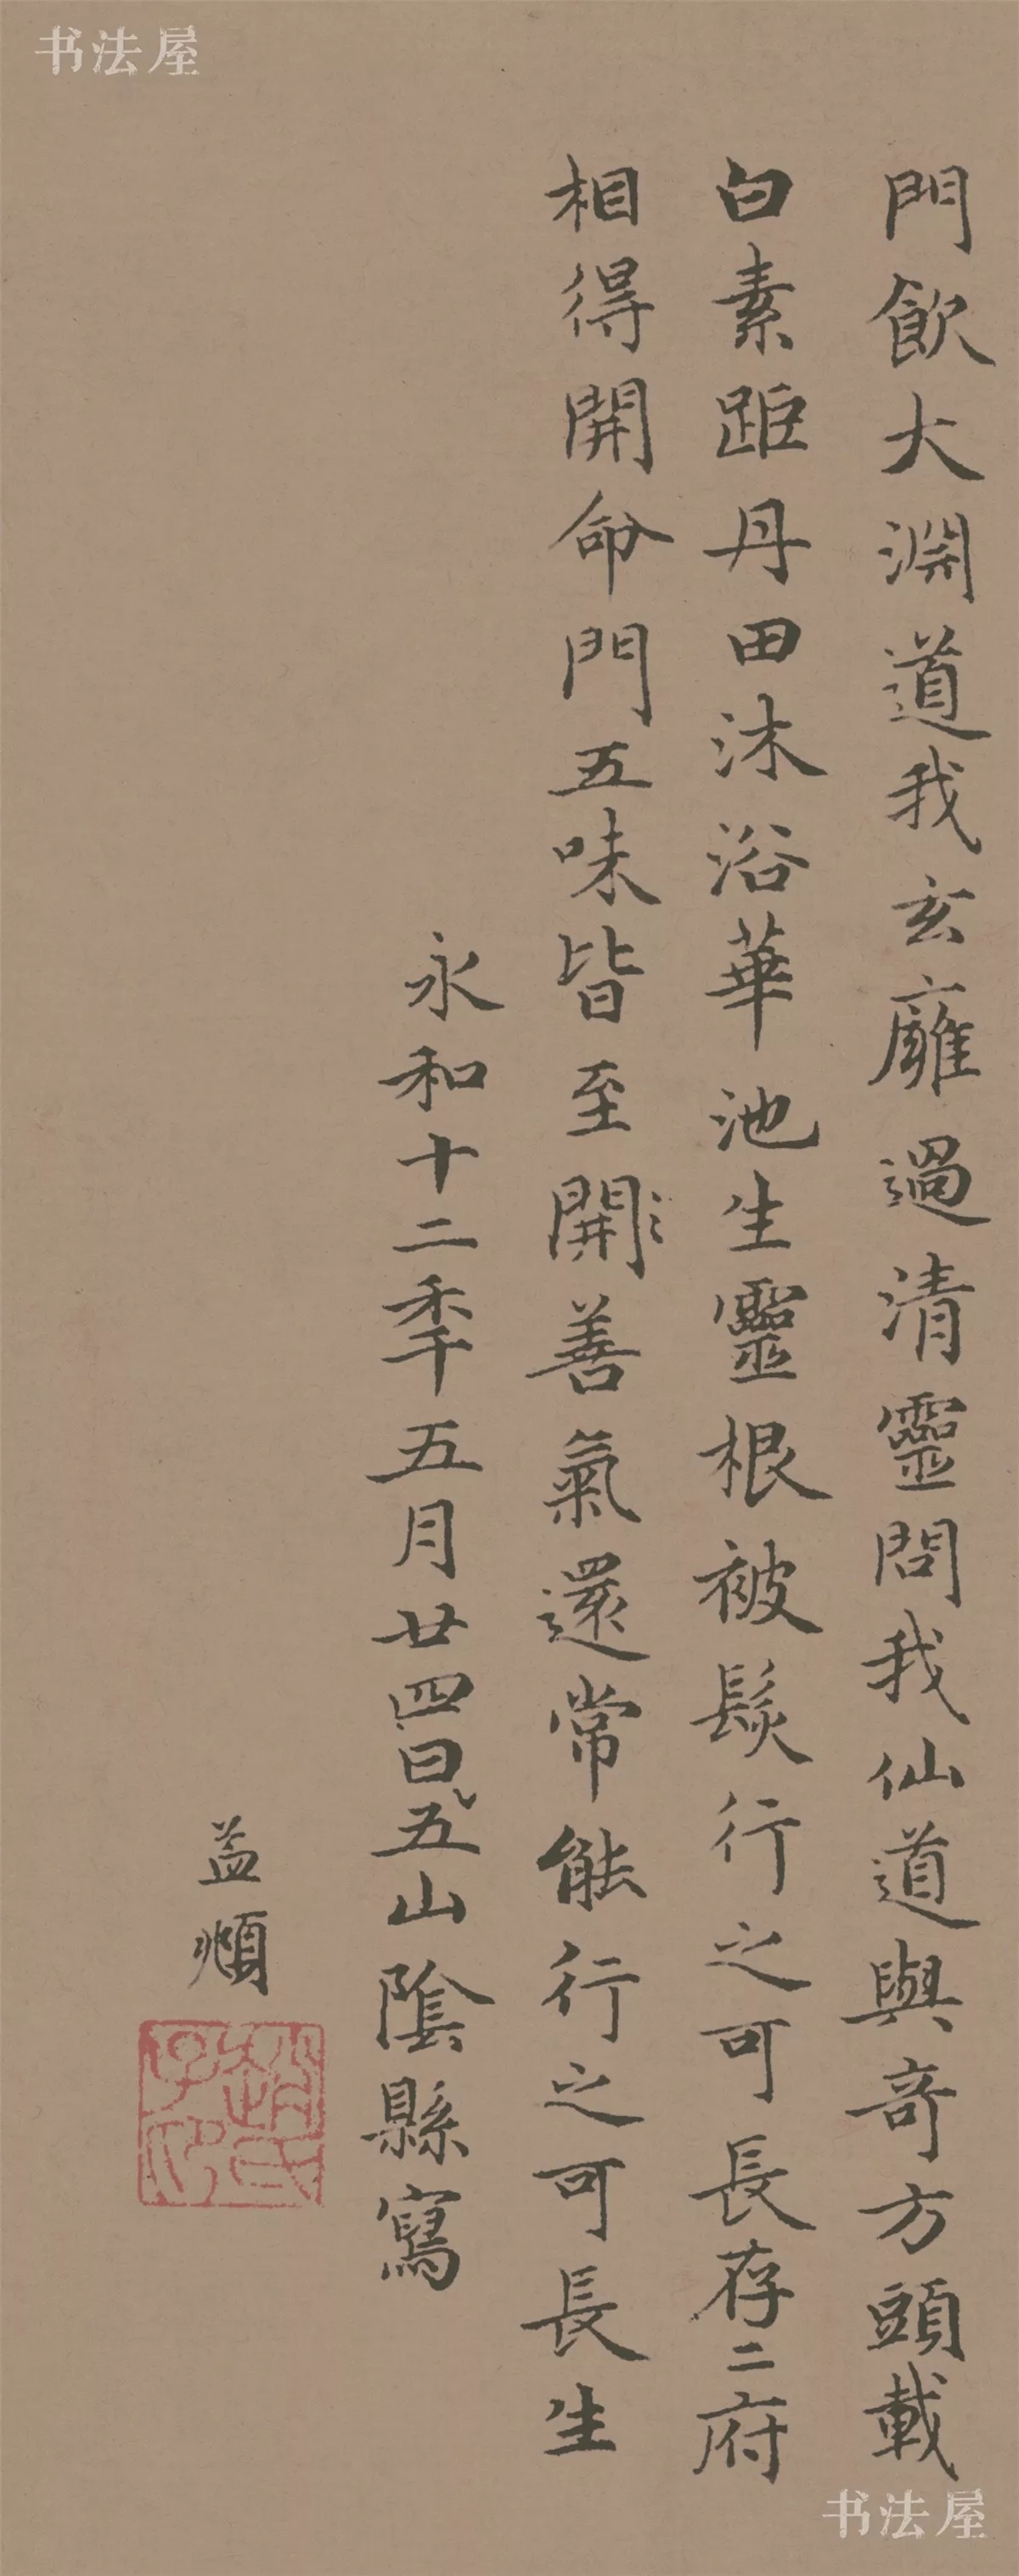 书法屋
門飲大淵道我玄廱過清靈問我仙道與奇方頭載
白素距丹田沐浴華池生靈根被髮行之可長存二府
相得開命門五味皆至開善氣還常能行之可長生
永和十二季五月廿四日五山陰縣寫
孟頫
趙氏子印
书法屋